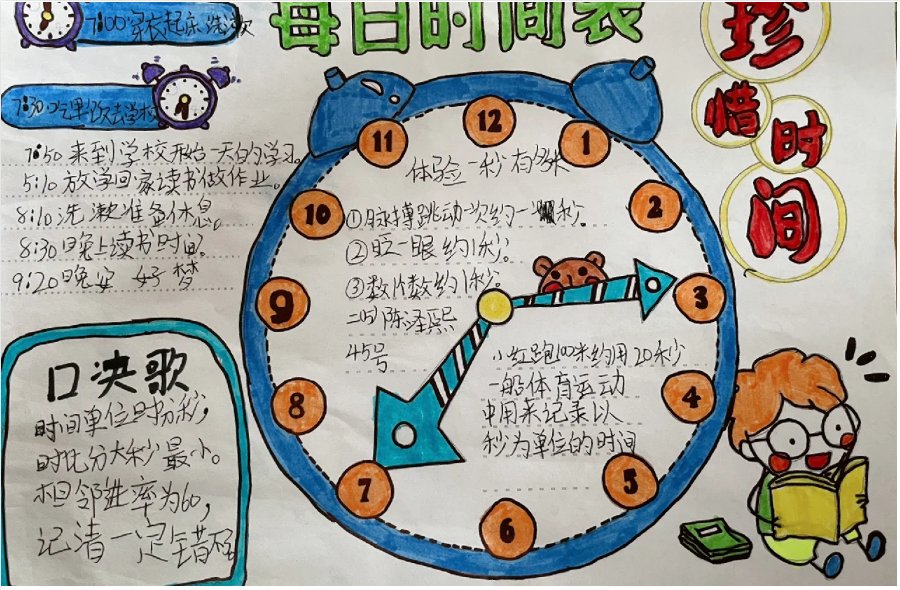 每日时间表
珍惜时间
7:00穿衣起床洗漱
7:30吃早饭去学校
7:50来到学校开始一天的学习。
5:10放学回家读书做作业。
8:10洗漱准备休息。
8:30晚上读书时间
9:20晚安 好梦
口决歌
时间单位时分秒,
时比分大秒最小。
相邻进率为60,
记清一定错不
体验一秒有多长
①脉搏跳动一次约一秒。
②眨一眼约1秒。
③数1个数约1秒。
二(5)陈泽
45号
小红跑100米约用20秒
一般体育运动
中用来记录以
秒为单位的时间
12
1
2
3
4
5
6
7
8
9
10
11